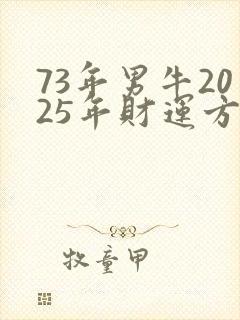 73年男牛20
25年財運方
牧童甲